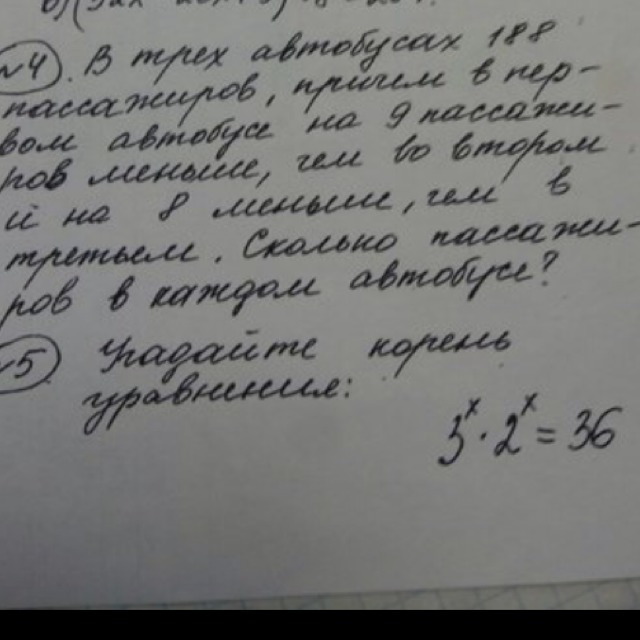 №4. В трех автобусах 188
пассажиров, причем в пер-
вом автобусе на 9 пассажи-
ров меньше, чем во втором
и на 8 меньше, чем в
третьем. Сколько пассажи-
ров в каждом автобусе?
№5 Угадайте корень
уравнения:
3ˣ · 2ˣ = 36